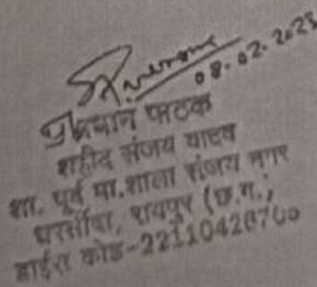 08.02.2023
प्रधान पाठक
शहीद संजय यादव
शा. पूर्व मा.शाला संजय नगर
धरसींवा, रायपुर (छ.ग.)
डाईस कोड-22110426700